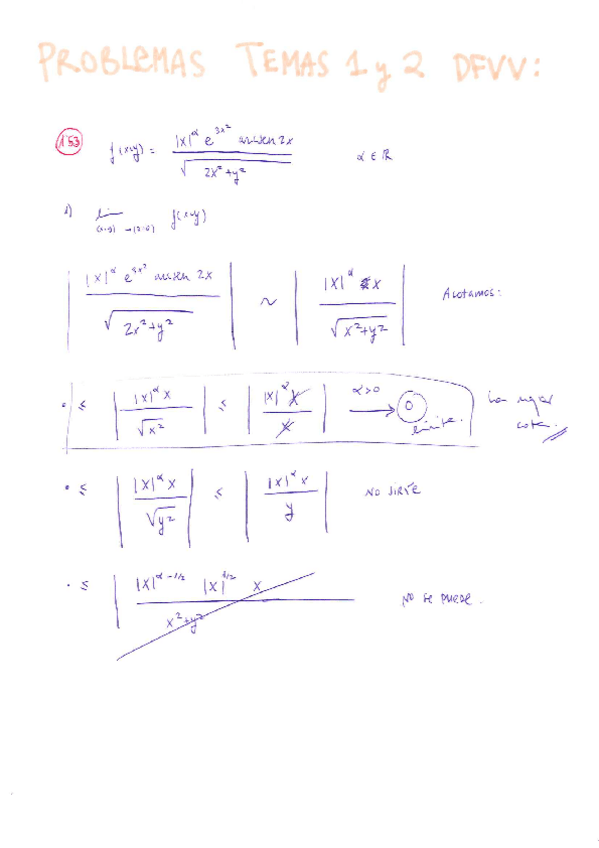 PROBLEMAS TEMAS 1 y 2 DFVV:
1.53 f(x,y) = |x|^α e^{3x²} arcsen 2x / √(2x²+y²) α ∈ ℝ
1) lim (x,y)→(0,0) f(x,y)
| |x|^α e^{3x²} arcsen 2x / √(2x²+y²) | ~ | |x|^α x / √(x²+y²) | Acotamos:
• ≤ | |x|^α x / √x² | ≤ | |x|^α x / x | α>0 → 0 límite. La mejor cota.
• ≤ | |x|^α x / √y² | ≤ | |x|^α x / y | NO SIRVE
• ≤ | |x|^{α-1/2} |x|^{1/2} x / x²+y² NO SE PUEDE.